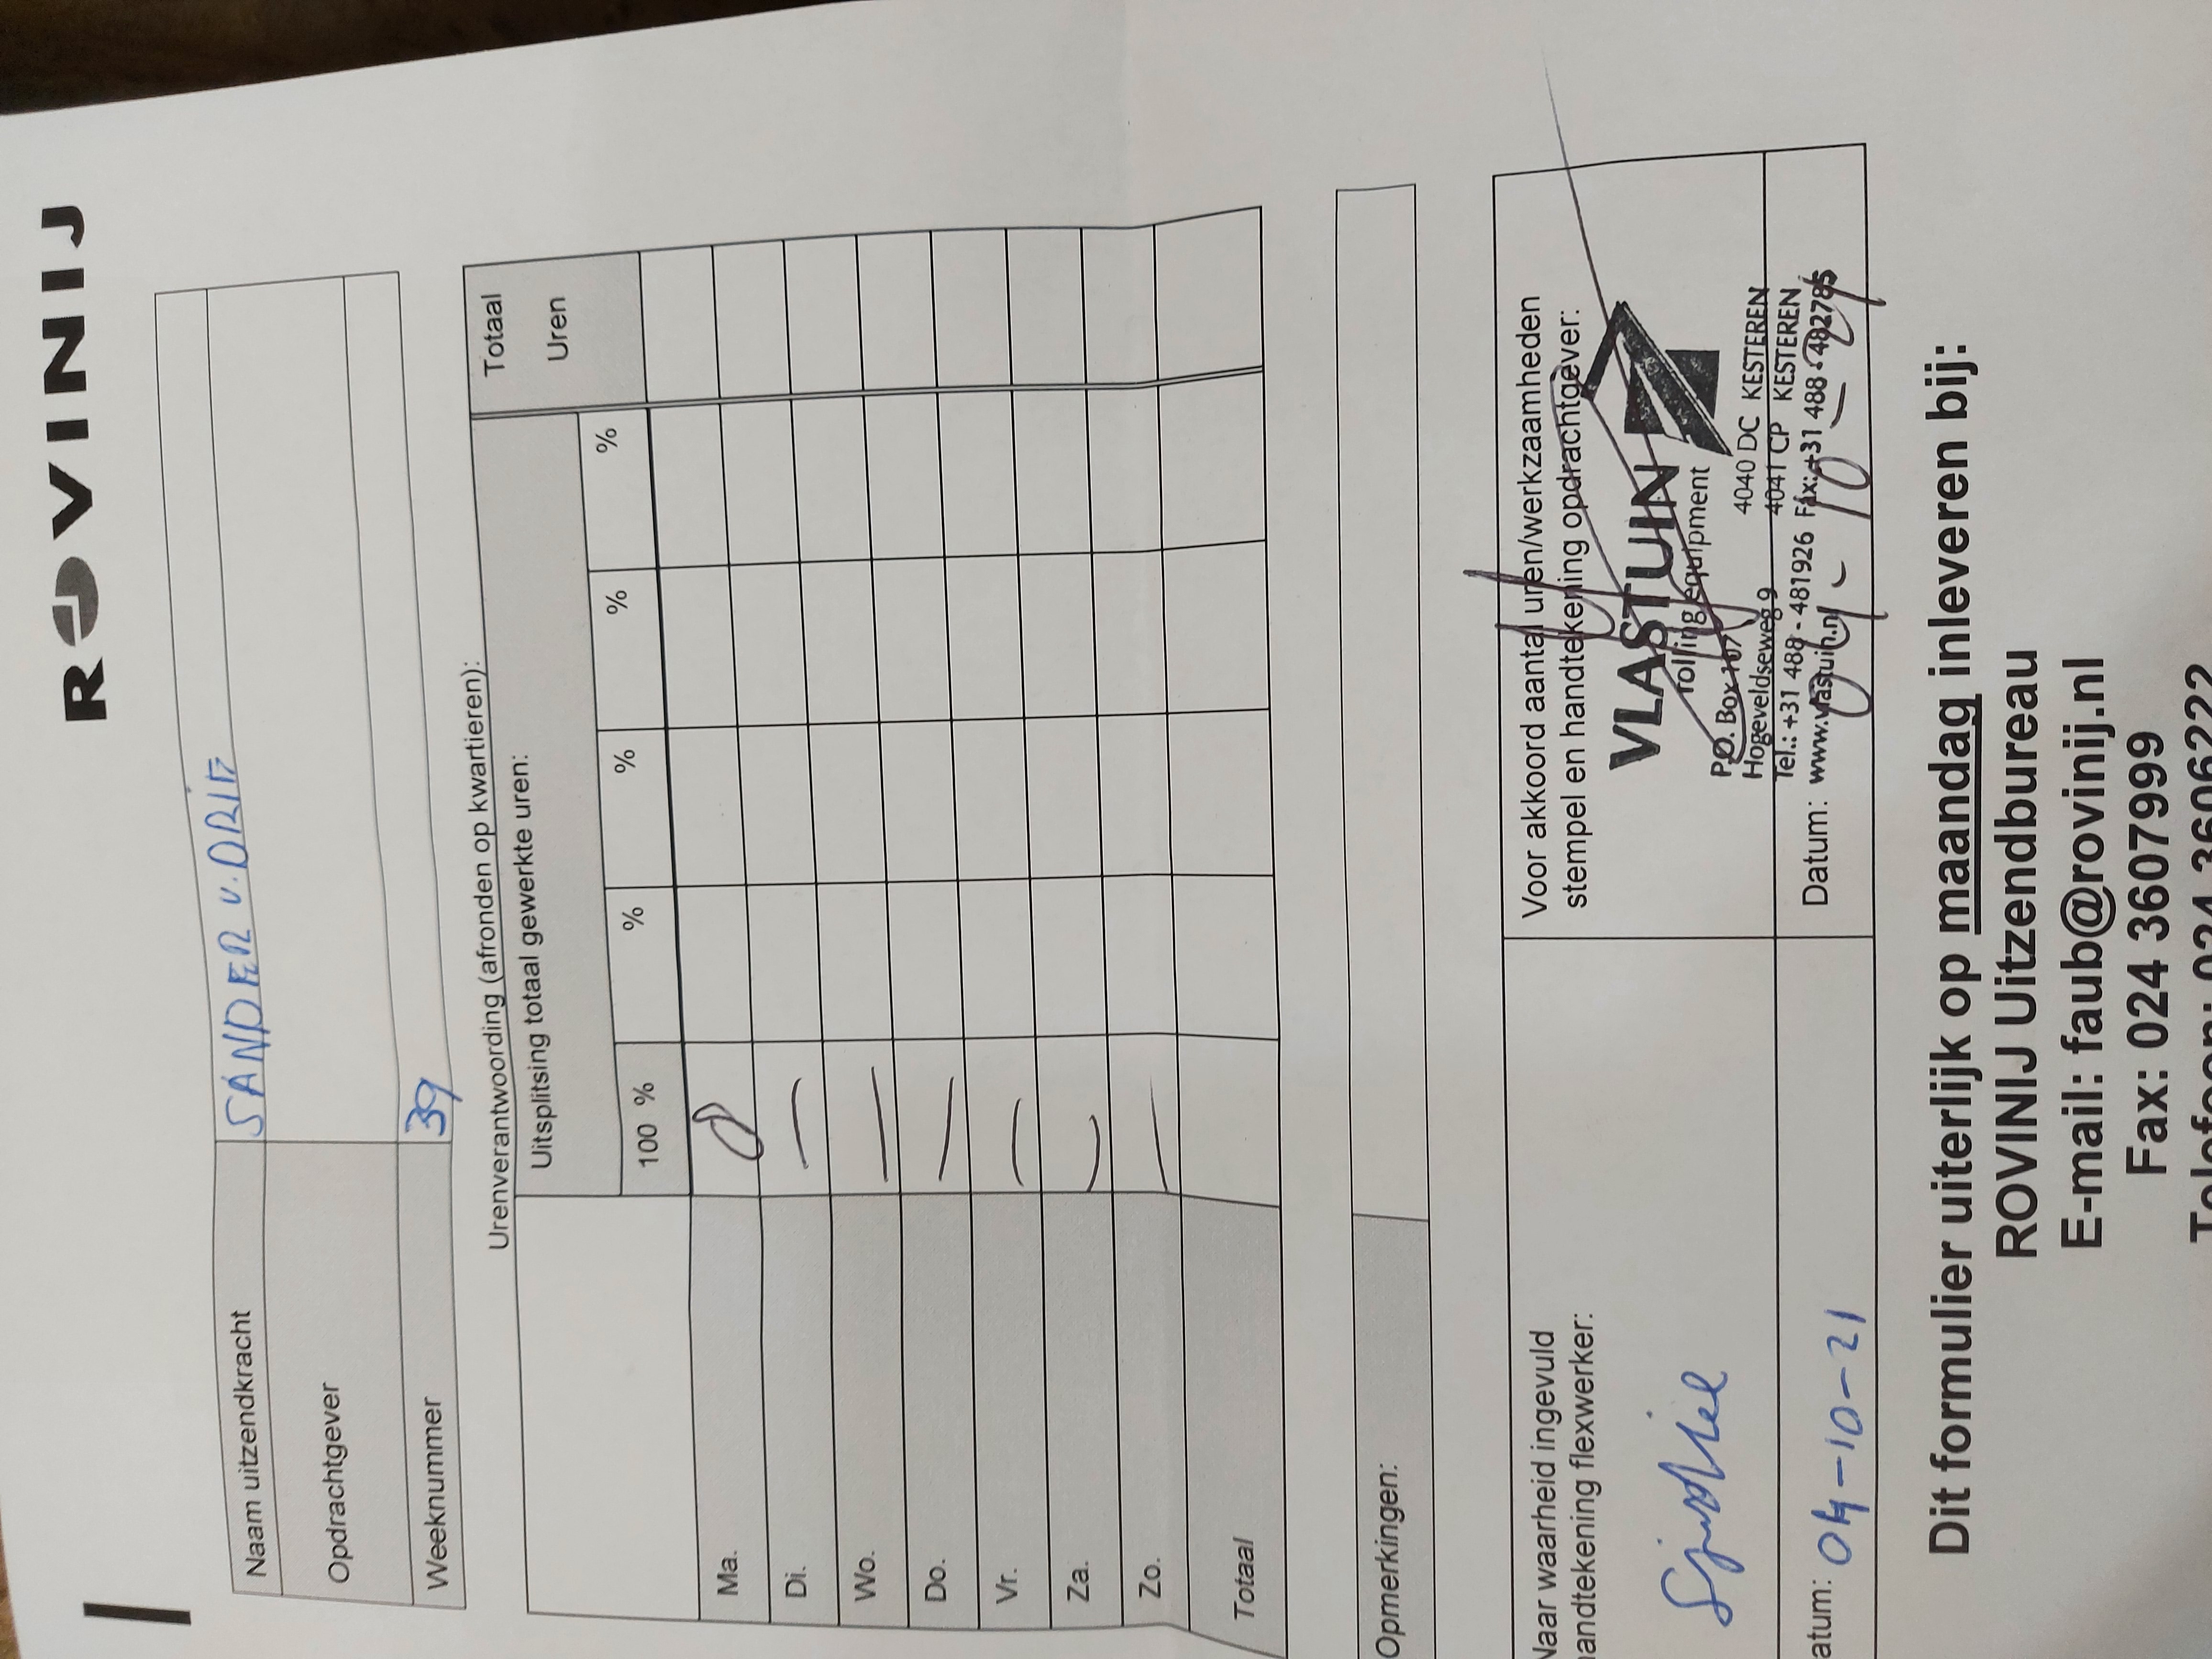 ROVINIJ
Naam uitzendkracht SANDER v. DRIE
Opdrachtgever
Weeknummer 39
Urenverantwoording (afronden op kwartieren):
Uitsplitsing totaal gewerkte uren: Totaal
Uren
100 % % % % %
Ma. 8
Di. —
Wo. —
Do. —
Vr. —
Za. —
Zo. —
Totaal
Opmerkingen:
Naar waarheid ingevuld
handtekening flexwerker:
Voor akkoord aantal uren/werkzaamheden
stempel en handtekening opdrachtgever:
VLASTUIN
rolling equipment
P.O. Box 107 4040 DC KESTEREN
Hogeveldseweg 9 4041 CP KESTEREN
Tel.: +31 488 - 481926 Fax: +31 488 - 482785
www.vlastuin.nl
atum: 04-10-21
Datum: 04-10-21
Dit formulier uiterlijk op maandag inleveren bij:
ROVINIJ Uitzendbureau
E-mail: faub@rovinij.nl
Fax: 024 3607999
Telefoon: 024 3606222